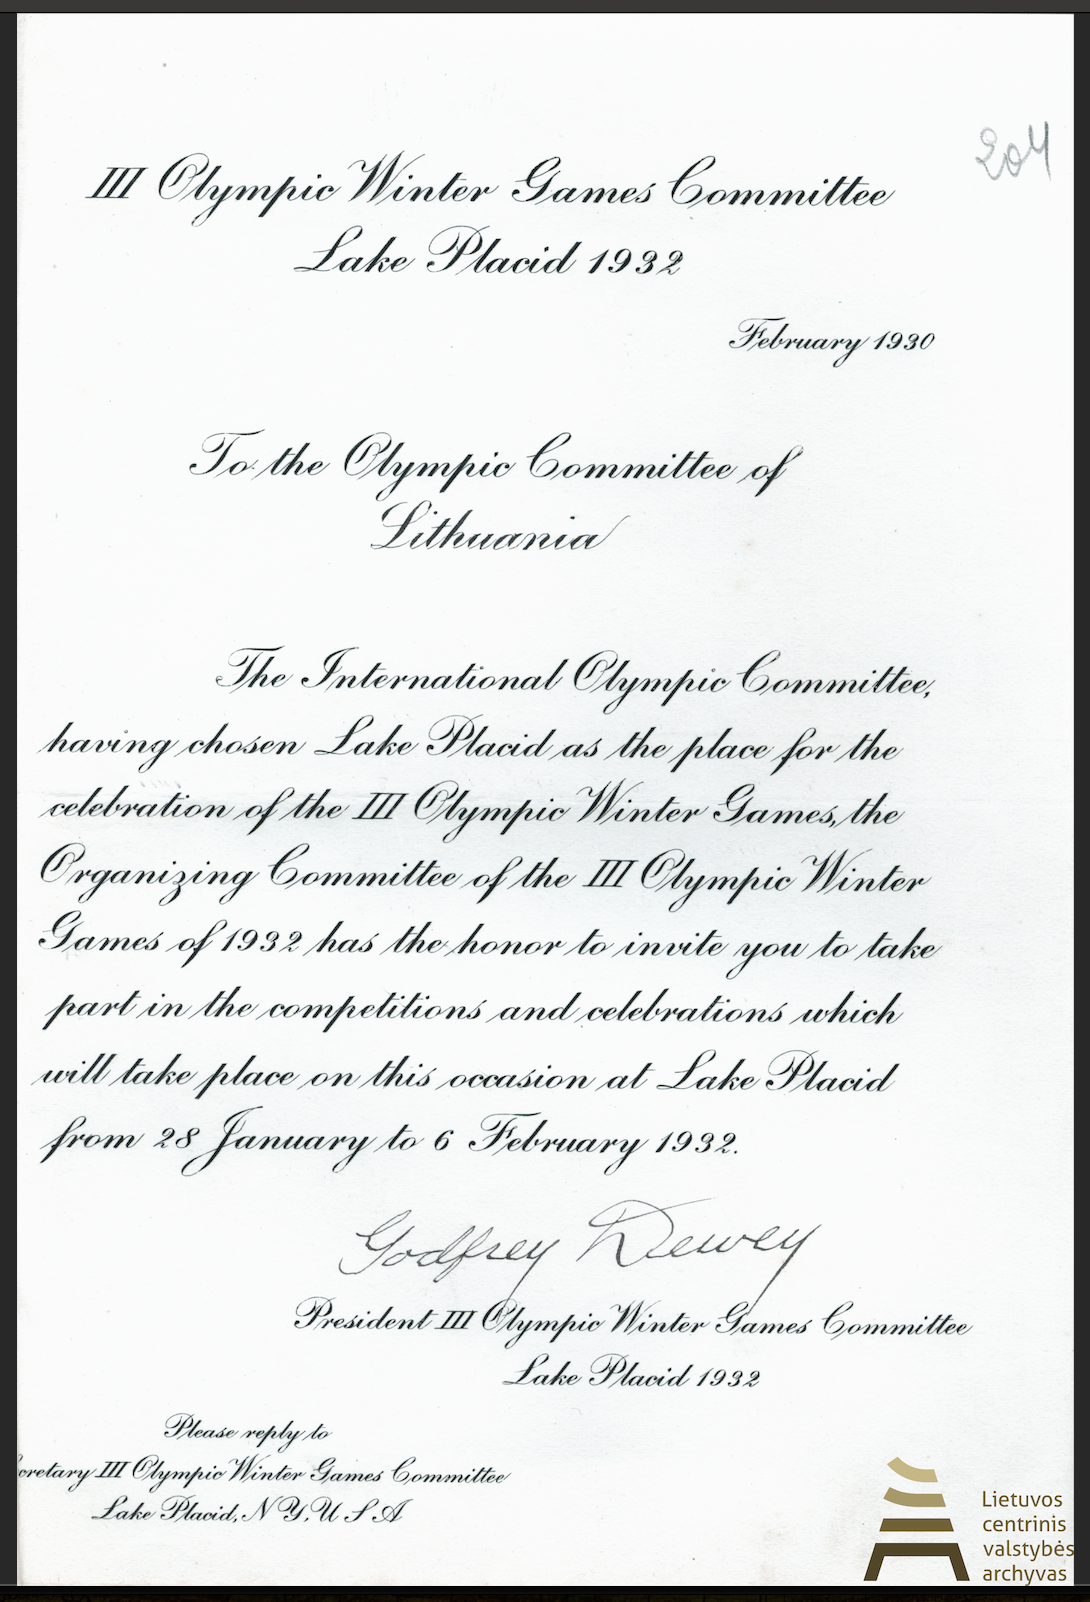 204
III Olympic Winter Games Committee
Lake Placid 1932
February 1930
To the Olympic Committee of
Lithuania
The International Olympic Committee,
having chosen Lake Placid as the place for the
celebration of the III Olympic Winter Games, the
Organizing Committee of the III Olympic Winter
Games of 1932 has the honor to invite you to take
part in the competitions and celebrations which
will take place on this occasion at Lake Placid
from 28 January to 6 February 1932.
Godfrey Dewey
President III Olympic Winter Games Committee
Lake Placid 1932
Please reply to
cretary III Olympic Winter Games Committee
Lake Placid, N Y, U S A
Lietuvos
centrinis
valstybės
archyvas